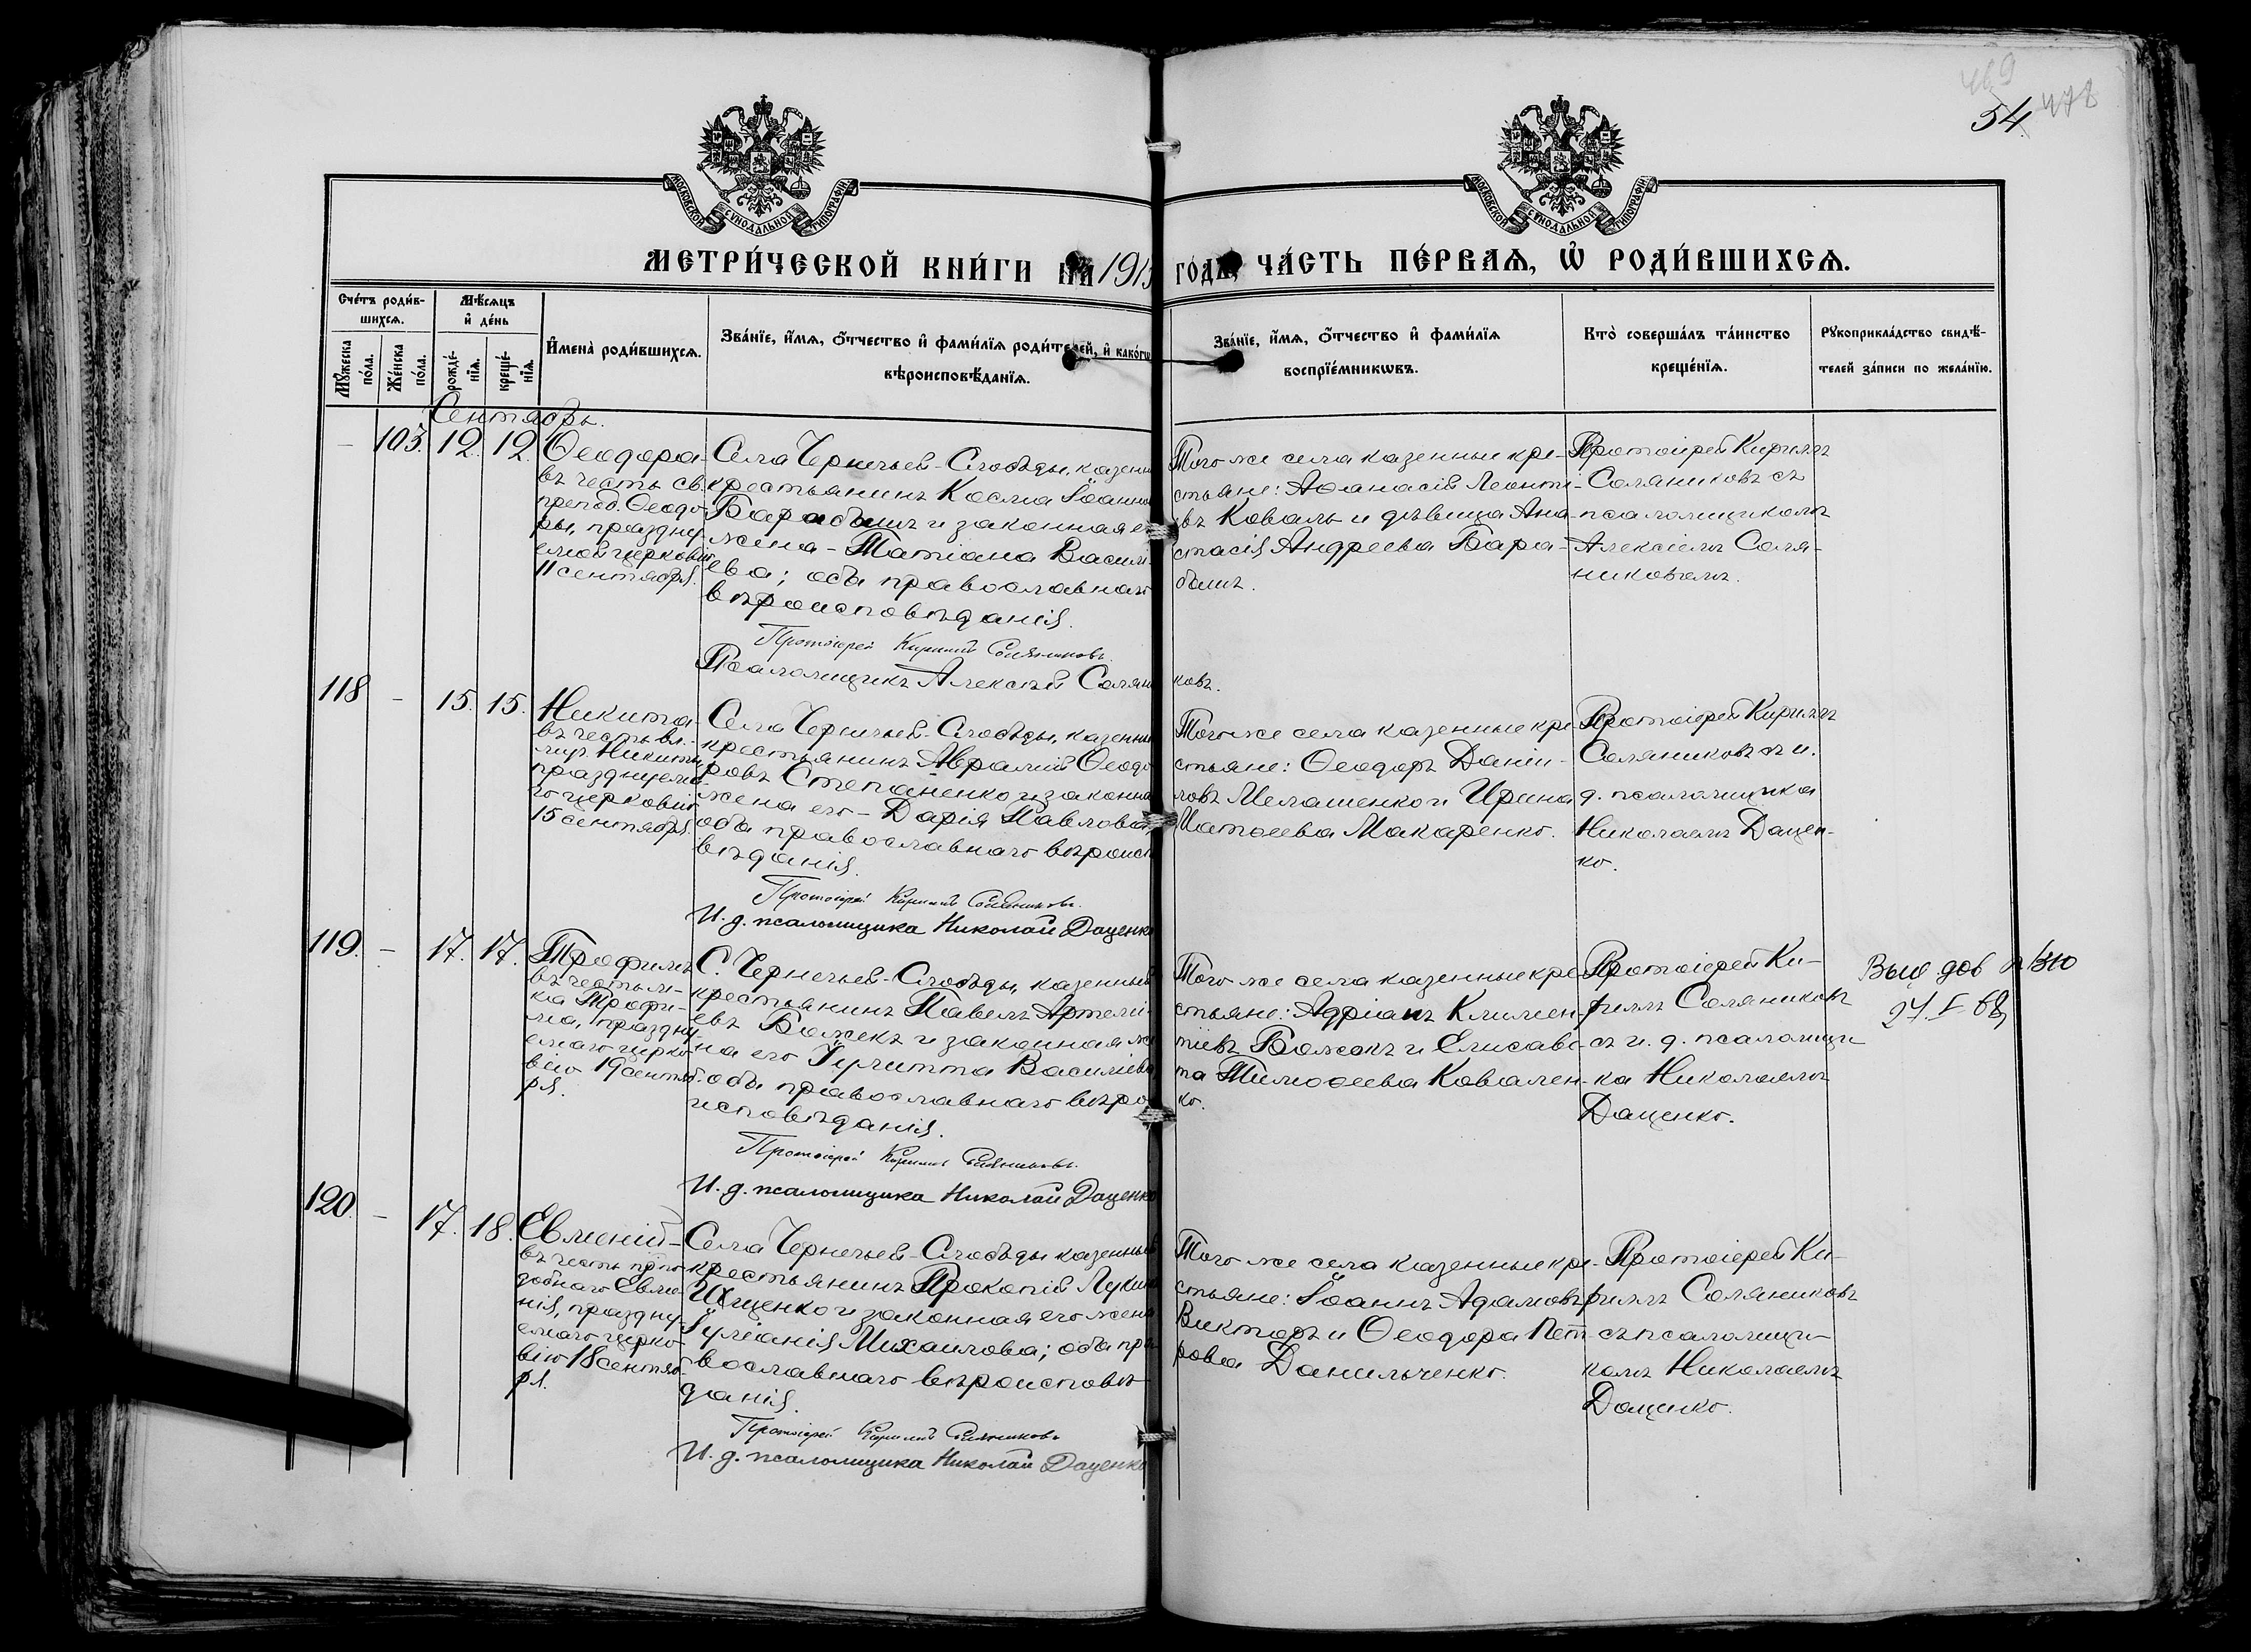 469
54. 478
МОСКОВСКОЙ СУНОДАЛЬНОЙ ТИПОГРАФІИ
МОСКОВСКОЙ СУНОДАЛЬНОЙ ТИПОГРАФІИ
МЕТРИ́ЧЕСКОЙ КНИ́ГИ НА 1915 ГО́ДЪ, ЧА́СТЬ ПЕ́РВАѦ, Ѿ РОДИ́ВШИХСѦ.
Счéтъ роди́в-
шихсѧ.
Мꙋ́жеска по́ла.
Же́нска по́ла.
Мѣ́сѧцъ
и҆ де́нь
рожде́-
нїѧ.
креще́-
нїѧ.
И҆мена̀ роди́вшихсѧ.
Зва́нїе, и҆́мѧ, ѻ҆́тчество и҆ фами́лїѧ роди́телей, и҆ како́гѡ
вѣроисповѣ́данїѧ.
Зва́нїе, и҆́мѧ, ѻ҆́тчество и҆ фами́лїѧ
воспрїе́мникѡвъ.
Кто̀ соверша́лъ та́инство
креще́нїѧ.
Рꙋкоприкла́дство свидѣ́-
телей за́писи по жела́нїю.
Сентябрь.
– 103. 12. 12.
Ѳеодора-
въ честь св.
препод. Ѳеодо-
ры, праздну-
емой церковію
11 сентября.
Села Чернечьей-Слободы, казенн
крестьянинъ Косма Іоаннов
Барабашъ и законная е
жена – Татіана Васильева
ева; оба православнаго
вѣроисповѣданія.
Протоіерей Кириллъ Соляниковъ.
Псаломщикъ Алексѣй Соляни
ковъ.
Того же села казенные кре-
стьяне: Аѳанасій Леонті-
евъ Коваль и дѣвица Ана-
стасія Андреева Бара-
башъ.
Протоіерей Кириллъ
Соляниковъ съ
псаломщикомъ
Алексіемъ Соля-
никовымъ.
118 – 15. 15.
Никита-
въ честь вл.-
муч. Никиты
празднуема-
го церковію
15 сентября.
Села Чернечьей-Слободы, казенны
крестьянинъ Авраамій Ѳеодо
ровъ Степаненко и законна
жена его – Дарія Павлова
оба православнаго вѣроиспо
вѣданія.
Протоіерей Кириллъ Соляниковъ.
И. д. псаломщика Николай Даценко
Того же села казенные кре-
стьяне: Ѳеодоръ Даніи-
ловъ Мелашенко и Ирина
Матѳеева Макаренко.
Протоіерей Кириллъ
Соляниковъ съ и.
д. псаломщика
Николаемъ Дацен-
ко.
119. – 17. 17.
Трофимъ
въ честь м-
ка Трофи-
ма, праздну
емаго церко-
вію 19 сентяб-
ря.
С. Чернечьей-Слободы, казенный
крестьянинъ Павелъ Артемі-
евъ Божекъ и законная же
на его Іулитта Васильева
оба православнаго вѣро
исповѣданія.
Протоіерей Кириллъ Соляниковъ.
И. д. псаломщика Николай Даценко
Того же села казенные кре-
стьяне: Адріанъ Климен-
тіевъ Божокъ и Елисаве-
та Тимоѳеева Ковален-
ко.
Протоіерей Ки-
риллъ Соляниковъ
съ и. д. псаломщи-
ка Николаемъ
Даценко.
Выд дов № 310
27.I 68
120. – 17. 18.
Евменій-
въ честь препо-
добнаго Евме-
нія, праздну-
емаго церко-
вію 18 сентяб-
ря.
Села Чернечьей-Слободы казенный
крестьянинъ Прокопій Лукинъ
Ищенко и законная его жена
Іуліанія Михаилова; оба пра
вославнаго вѣроисповѣ-
данія.
Протоіерей Кириллъ Соляниковъ
И. д. псаломщика Николай Даценко
Того же села казенные кре-
стьяне: Іоаннъ Адамовъ
Викторъ и Ѳеодора Пет-
рова Данильченко.
Протоіерей Ки-
риллъ Соляниковъ
съ псаломщи-
комъ Николаемъ
Даценко.